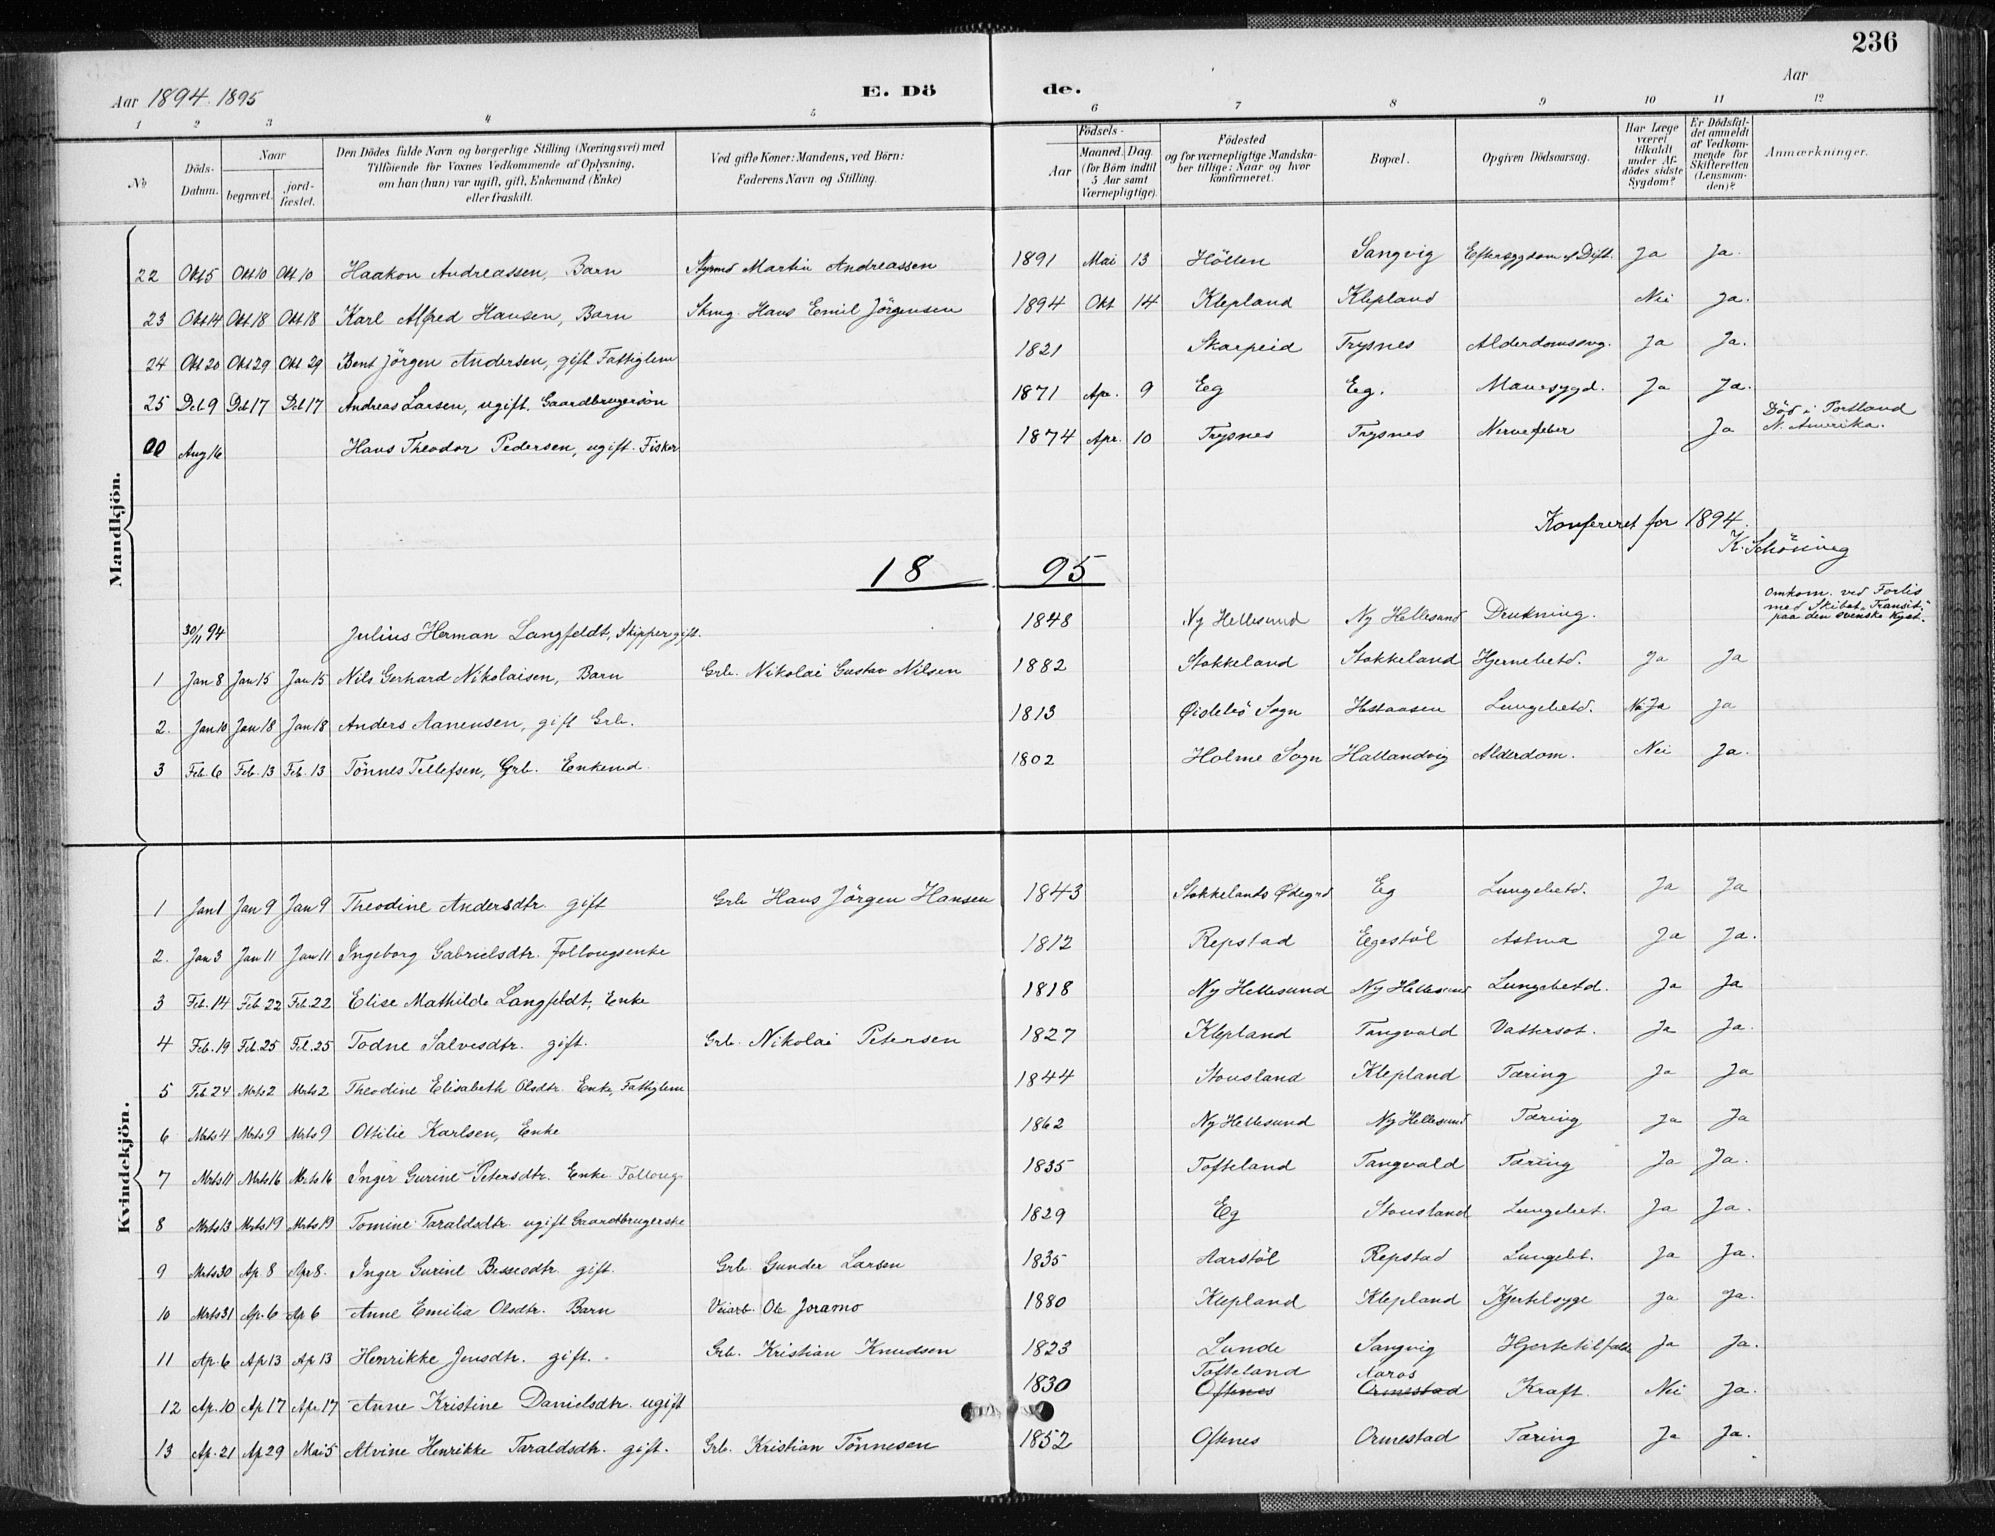 236
Aar 1894. 1895
E. Dö de.
Aar
1 2 3 4 5 6 7 8 9 10 11 12
No
Döds-Datum.
Naar
begravet.
jord-fæstet.
Den Dödes fulde Navn og borgerlige Stilling (Næringsvei) med
Tilföiende for Voxnes Vedkommende af Oplysning,
om han (hun) var ugift, gift, Enkemand (Enke)
eller fraskilt.
Ved gifte Koner: Mandens, ved Börn:
Faderens Navn og Stilling.
Födsels-
Aar
Maaned. Dag
(for Börn indtil
5 Aar samt
Værnepligtige).
Födested
og for værnepligtige Mandska-
ber tillige: Naar og hvor
konfirmeret.
Bopæl.
Opgiven Dödsaarsag.
Har Læge
været
tilkaldt
under Af-
dödes sidste
Sygdom?
Er Dödsfal-
det anmeldt
af Vedkom-
mende for
Skifteretten
(Lensman-
den)?
Anmærkninger.
Mandkjön.
22 Okt 5 Okt 10 Okt 10 Haakon Andreassen, Barn Styrmd Martin Andreassen 1891 Mai 13 Höllen Sangvig Eftersygdom af Dift. Ja Ja.
23 Okt 14 Okt 18 Okt 18 Karl Alfred Hansen, Barn Hans Emil Jörgensen 1894 Okt 14 Klepland Klepland Nei Ja.
24 Okt 20 Okt 29 Okt 29 Bent Jörgen Andersen, gift Fattiglem 1821 Skarpeid Trysnes Alderdomssvg. Ja Ja.
25 Dcb 9 Dcb 17 Dcb 17 Andreas Larsen, ugift. Gaardbrugersön 1871 Apr. 9 Eeg Eeg. Mavesygd. Ja Ja.
00 Aug 16 Hans Theodor Pedersen, ugift. Fisker 1874 Apr. 10 Trysnes Trysnes Nervefeber Ja Död i Portland
N. Amerika.
Konfereret for 1894.
K. Schöning
18 95
30/11 94 Julius Herman Langfeldt, Skipper gift. 1848 Ny Hellesund Ny Hellesund Drukning. Omkom. ved Forlis
med Skibet "Transit"
paa den svenske Kyst.
1 Jan 8 Jan 15 Jan 15 Nils Gerhard Nikolaisen, Barn Grb. Nikolai Gustav Nilsen 1882 Stokkeland Stokkeland Hjernebetd. Ja Ja
2. Jan 10 Jan 18 Jan 18 Anders Aanensen, gift Grb. 1813 Øislebö Sogn Lungebetd. Ja Ja
3 Feb. 6 Feb. 13 Feb. 13 Tönnes Tellefsen, Grb. Enkemd. 1802 Holme Sogn Hallandvig Alderdom. Nei Ja.
Kvindekjön.
1 Jan 1 Jan 9 Jan 9 Theodine Andersdtr. gift Grb Hans Jörgen Hansen 1843 Stokkelands Ødegrd Eg Lungebetd. Ja Ja
2. Jan 3 Jan 11 Jan 11 Ingeborg Gabrielsdtr. Follougsenke 1812 Repstad Egestöl Astma Ja Ja.
3 Feb. 14 Feb 22 Feb. 22 Elise Mathilde Langfeldt, Enke 1818 Ny Hellesund Ny Hellesund Lungebetd. Ja Ja
4 Feb. 19 Feb. 25 Feb. 25 Todne Salvesdtr. gift. Grb. Nikolai Petersen 1827 Klepland Tangvald Vattersot. Ja Ja.
5 Feb 24 Mrts 2 Mrts 2 Theodine Elisabeth Olsdtr. Enke, Fattiglem 1844 Stousland Klepland Tæring Ja Ja
6 Mrts 4 Mrts 9 Mrts 9 Ottilie Karlsen, Enke 1862 Ny Hellesund Ny Hellesund Tæring Ja Ja
7 Mrts 11 Mrts 16 Mrts 16 Inger Gurine Petersdtr. Enke. Folloug. 1835 Tofteland Tangvald Tæring Ja Ja.
8 Mrts 13 Mrts 19 Mrts 19 Tomine Taraldsdtr. ugift Gaardbrugerske 1829 Eg Stousland Lungebet. Ja Ja.
9 Mrts 30 Ap 8 Apr 8. Inger Gurine Bessesdtr. gift. Grb. Gunder Larsen 1835 Aarstöl Repstad Lungebt. Ja Ja.
10 Mrts 31 Ap. 6 Ap 6 Anne Emilia Olsdtr. Barn Veiarb. Ole Joramo 1880 Klepland Klepland Kjertelsyge Ja Ja.
11 Ap. 6 Ap 13 Ap 13 Henrikke Jensdtr. gift. Grb. Kristian Knudsen 1823 Lunde Sangvig Hjertetilfælde Ja Ja.
Tofteland Aaros
12 Ap. 10 Ap 17 Apr. 17 Anne Kristine Danielsdtr. ugift 1830 Oftenes Ormestad Kraft. Nei Ja.
13 Ap. 21 Ap 29 Mai 5 Alvine Henrikke Taraldsdtr. gift. Grb. Kristian Tönnesen 1852 Oftnes Ormestad Tæring Ja Ja.